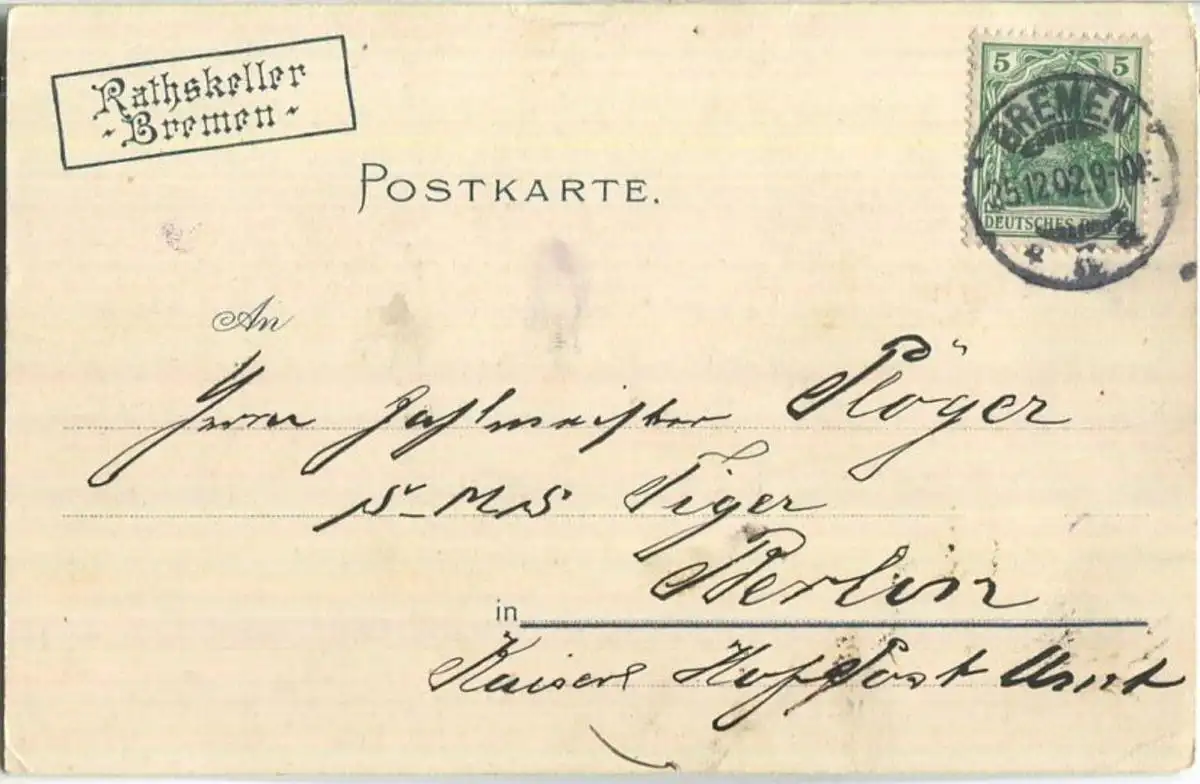 Rathskeller
- Bremen -
POSTKARTE.
5 5
BREMEN
25.12.02.9-10
DEUTSCHES
An
Herrn Zahlmeister Plöger
S. M. S Tiger
in Berlin
Kaiserl Hof Post Amt